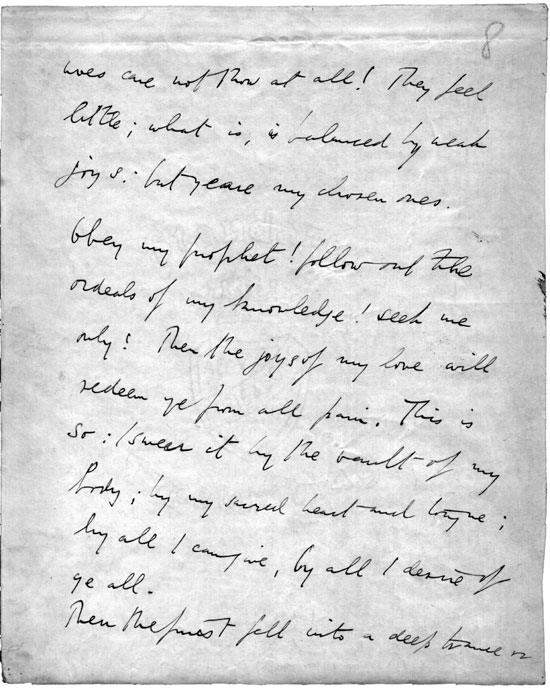 8
woes care not thou at all! They feel
little; what is, is balanced by weak
joys: but ye are my chosen ones.
Obey my prophet! follow out the
ordeals of my knowledge! seek me
only! Then the joys of my love will
redeem ye from all pain. This is
so: I swear it by the vault of my
body; by my sacred heart and tongue;
by all I can give, by all I desire of
ye all.
Then the priest fell into a deep trance or